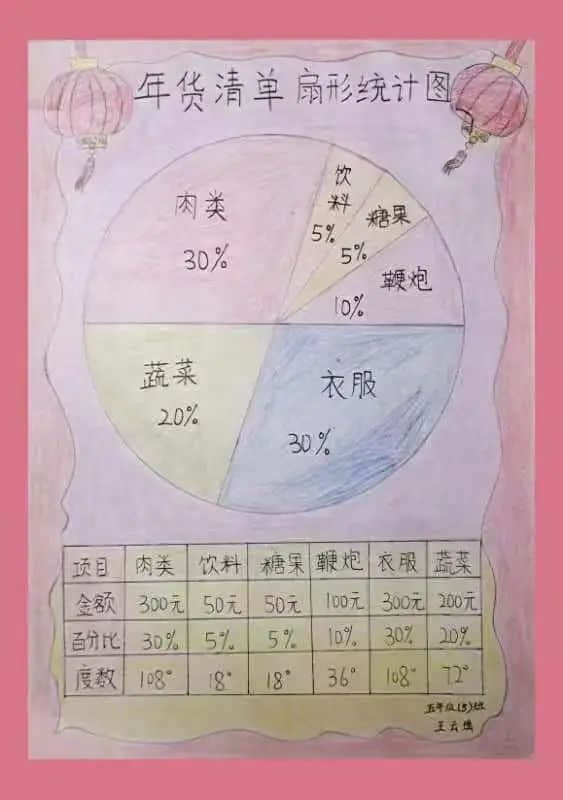 年货清单扇形统计图
肉类
30%
饮料
5%
糖果
5%
鞭炮
10%
蔬菜
20%
衣服
30%
项目 肉类 饮料 糖果 鞭炮 衣服 蔬菜
金额 300元 50元 50元 100元 300元 200元
百分比 30% 5% 5% 10% 30% 20%
度数 108° 18° 18° 36° 108° 72°
五年级(3)班
王云